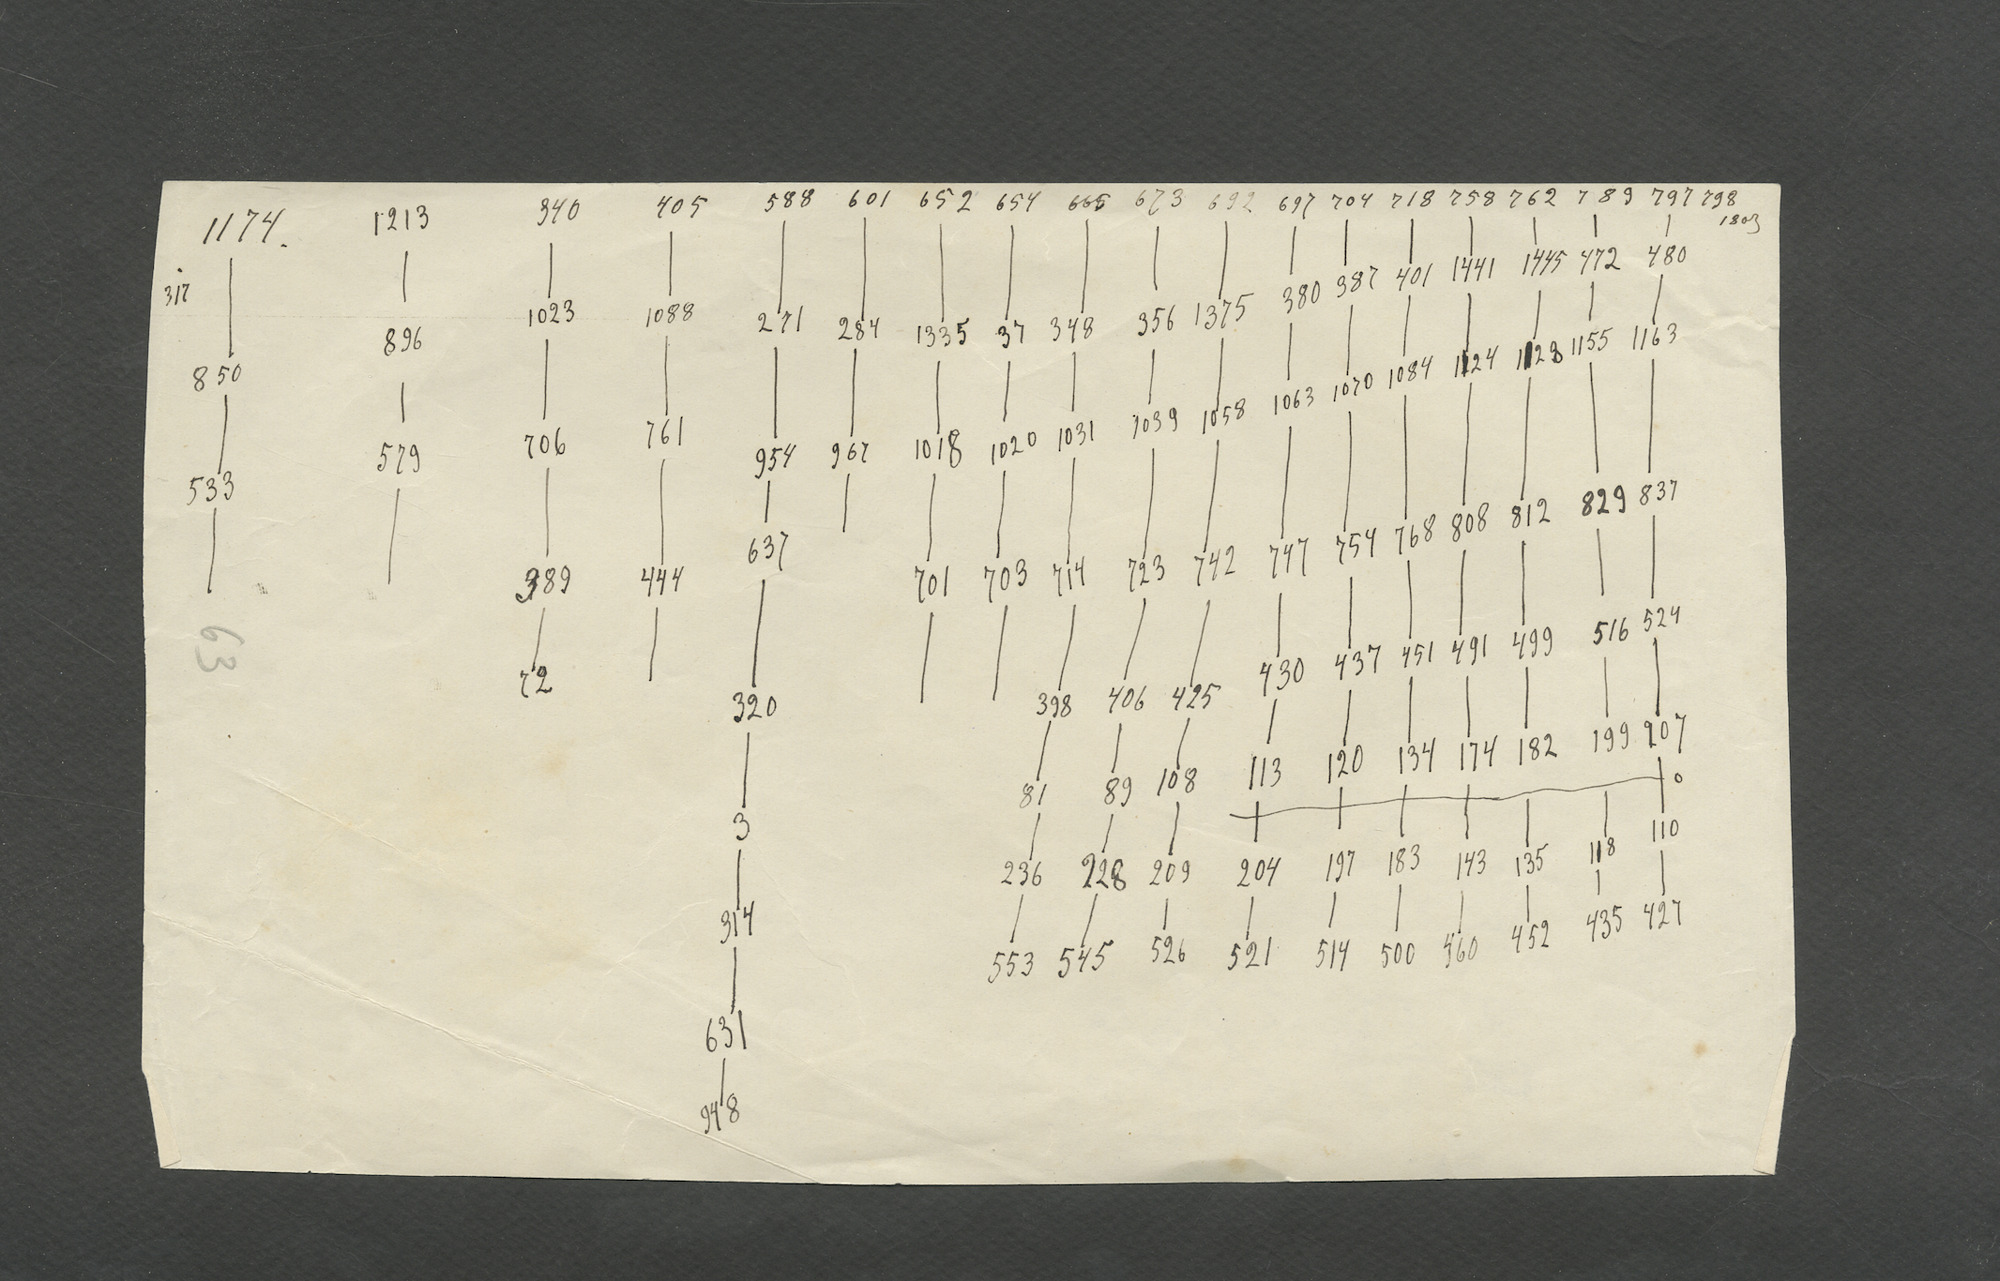 1174. 1213 340 405 588 601 652 654 665 673 692 697 704 718 758 762 789 797 798
1803
317
1023 1088 271 284 1335 37 348 356 1375 380 387 401 1441 1445 472 480
850 896
706 761 954 967 1018 1020 1031 1039 1058 1063 1070 1084 1124 1128 1155 1163
533 579
389 444 637 701 703 714 723 742 747 754 768 808 812 829 837
72 320 398 406 425 430 437 451 491 499 516 524
3 81 89 108 113 120 134 174 182 199 207
0
314 236 228 209 204 197 183 143 135 118 110
631 553 545 526 521 514 500 460 452 435 427
948
63